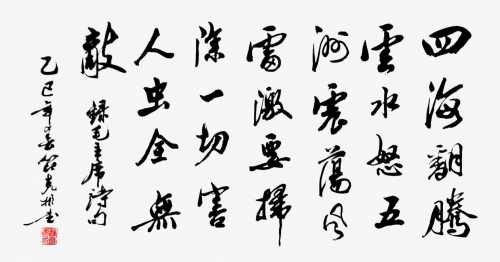 四海翻騰
雲水怒五
洲震蕩风
雷激要掃
除一切害
人虫全無
敵
録毛主席詩句
乙巳年